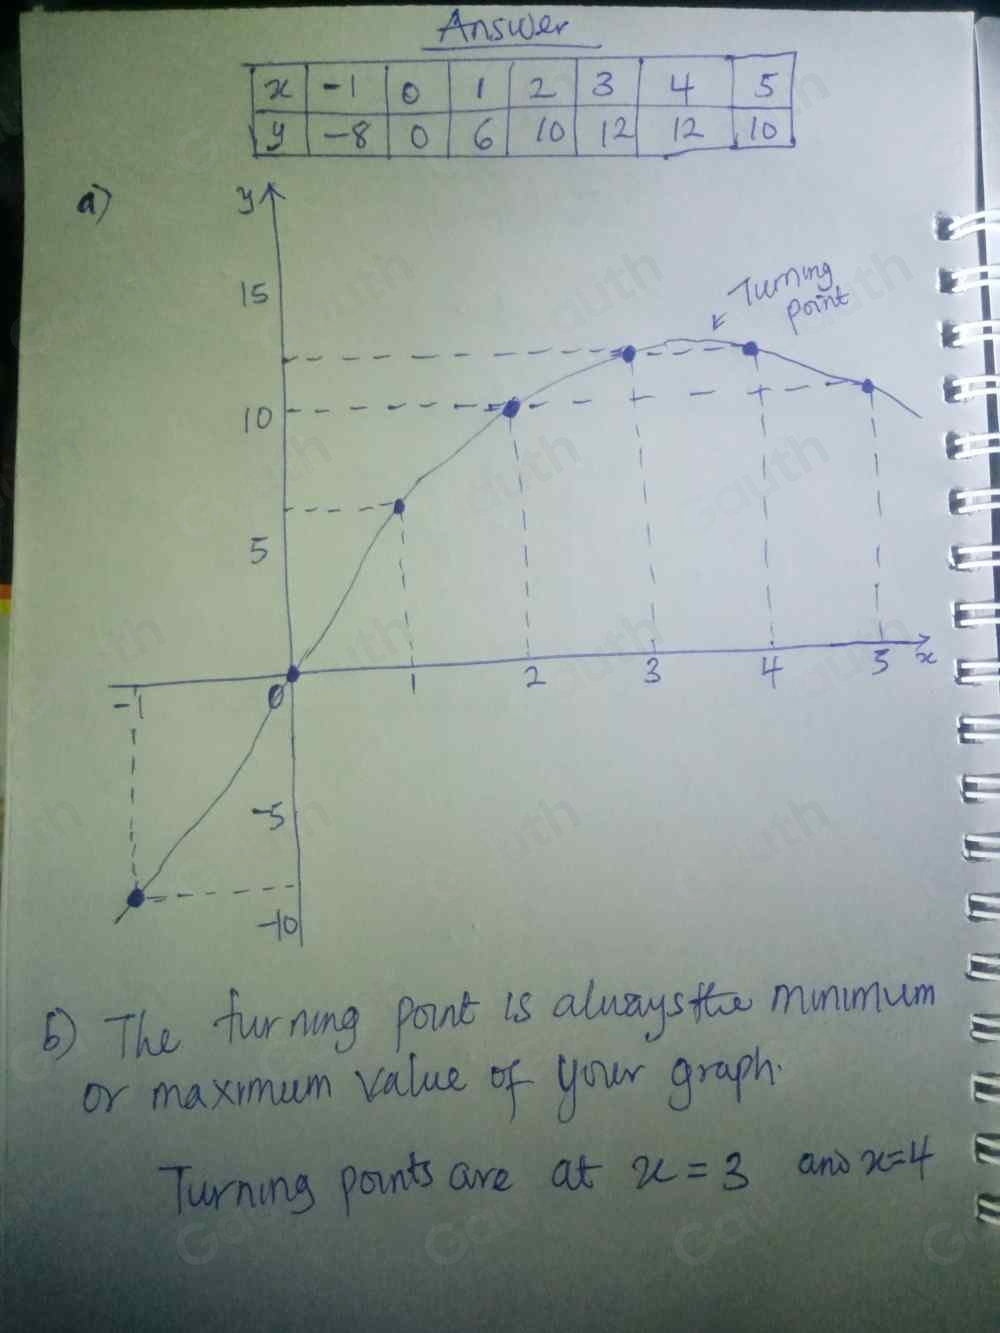 Answer
x -1 0 1 2 3 4 5
y -8 0 6 10 12 12 10
a)
y
15
Turning
point
10
5
-1 0 1 2 3 4 5 x
-5
-10
b) The turning point is always the minimum
or maximum value of your graph.
Turning points are at x = 3 and x=4
Gauth Gauth Gauth Gauth